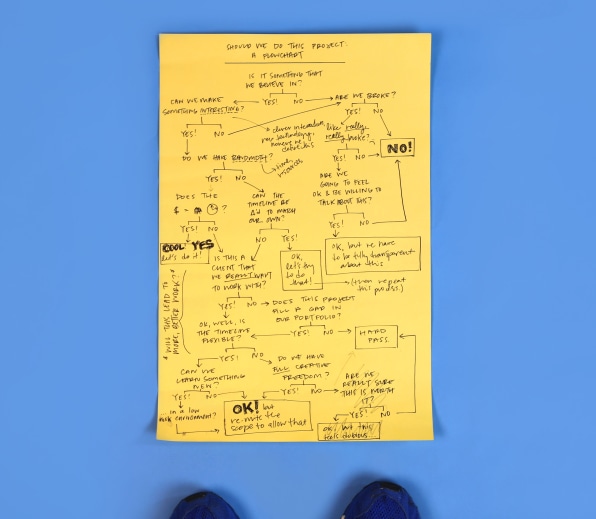 SHOULD WE DO THIS PROJECT:
A FLOWCHART
IS IT SOMETHING THAT
WE BELIEVE IN?
YES! NO
ARE WE BROKE?
YES! NO
CAN WE MAKE
SOMETHING INTERESTING?
YES! NO
* clever interaction,
new technology,
like really,
really broke?
YES! NO
NO!
DO WE HAVE BANDWIDTH?
YES! NO
ARE WE
GOING TO FEEL
OK & BE WILLING TO
TALK ABOUT THIS?
YES! NO
OK, but we have
to be fully transparent
about this
(even repeat
this process.)
DOES THE
$ =
?
YES! NO
COOL YES
let's do it!
CAN THE
TIMELINE BE
Δ'd TO MATCH
OUR OWN?
NO YES!
OK,
let's try
to do
that!
IS THIS A
CLIENT THAT
WE REALLY WANT
TO WORK WITH?
YES! NO
* WILL THIS LEAD TO
MORE, BETTER WORK? *
DOES THIS PROJECT
FILL A GAP IN
OUR PORTFOLIO?
YES! NO
HARD
PASS.
OK, WELL, IS
THE TIMELINE
FLEXIBLE?
YES! NO
CAN WE
LEARN SOMETHING
NEW?
YES! NO
... in a low
risk environment?
DO WE HAVE
FULL CREATIVE
FREEDOM?
YES! NO
OK! but
re-write the
scope to allow that
ARE WE
REALLY SURE
THIS IS WORTH
IT?
YES! NO
OK, but this
feels dubious